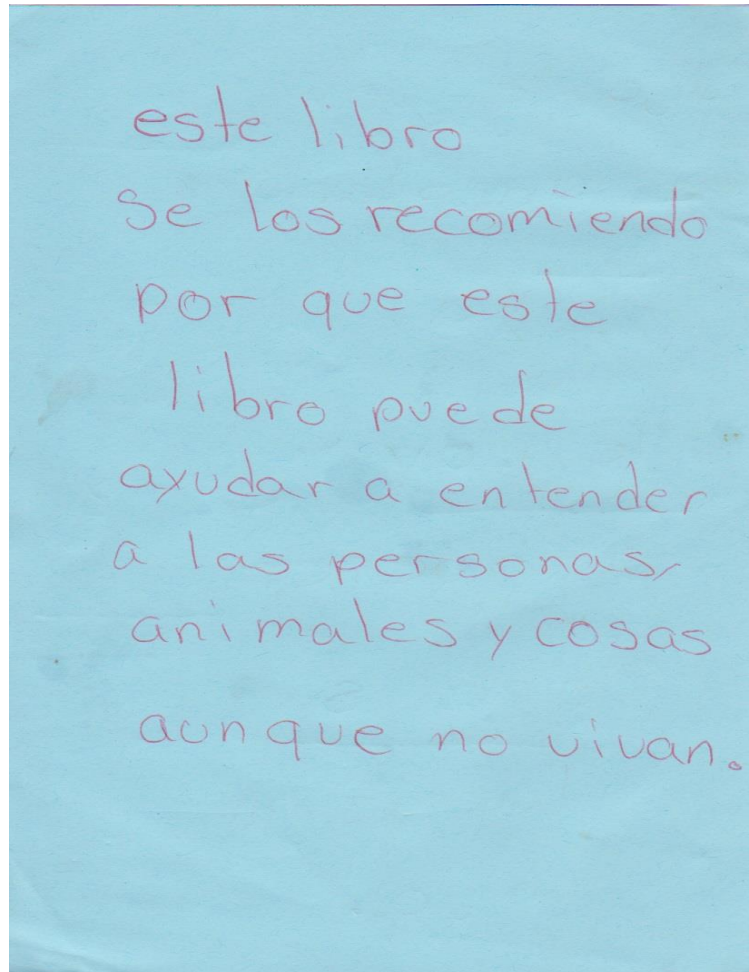 este libro
Se los recomiendo
por que este
libro puede
ayudar a entender
a las personas,
animales y cosas
aunque no vivan.